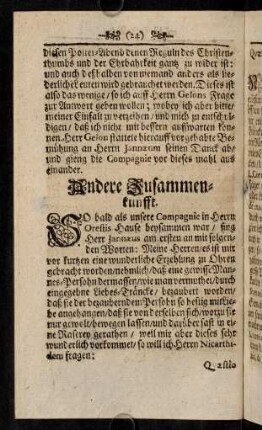 (24)
diesen Polter-Abend denen Reguln des Christen-
thumbs und der Ehrbahrkeit gantz zu wider ist:
und auch deßhalben von niemand anders als lie-
derlichē Leuten wird gebrauchet werden. Dieses ist
also das wenige / so ich auff Herrn Gelons Frage
zur Antwort geben wollen; wobey ich aber bitte/
meiner Einfalt zu verzeihen / und mich zu entschul-
digen / daß ich nicht mit bessern auffwarten kön-
nen. Herr Gelon stattete hierauff vor gehabte Be-
mühung an Herrn Jannæum seinen Danck ab/
und gieng die Compagnie vor dieses mahl aus
einander.
Andere Zusammen-
kunfft.
SO bald als unsere Compagnie in Herrn
Orestis Hause beysammen war / fing
Herr Jannæus am ersten an mit folgen-
den Worten: Meine Herren / es ist mir
vor kurtzen eine wunderliche Erzehlung zu Ohren
gebracht worden / nehmlich / daß eine gewisse Man-
nes-Persohn dermassen / wie man vermuthet / durch
eingegebne Liebes-Träncke / bezaubert worden/
daß sie der bezaubernden Persohn so hefftig mit Lie-
be angehangen / daß sie von derselben sich / worzu sie
nur gewolt / bewegen lassen / und darüber fast in ei-
ne Raserey gerathen / weil mir aber dieses sehr
wunderlich vorkommet / so will ich Herrn Nicarchi-
dem fragen:
Quæstio